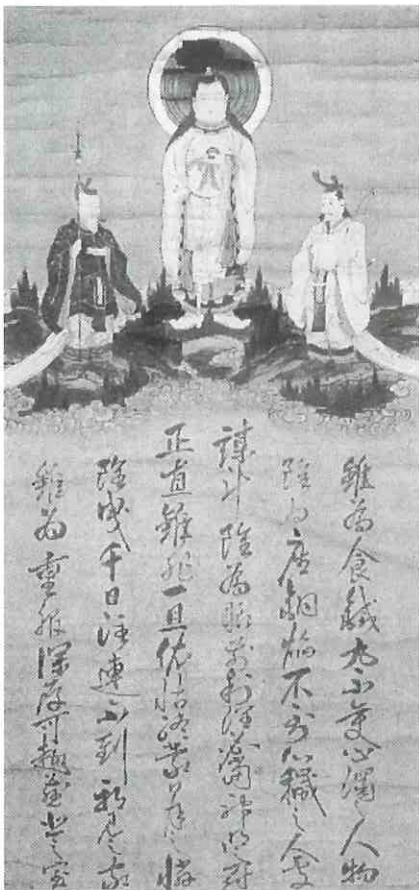 雖為食鐵丸不受心濁之人物
雖為座銅焔不到心穢之人處
謀計雖為眼前利潤必當神明罰
正直雖非一旦依怙終蒙日月之憐
雖曳千日注連不到邪見之家
雖為重服深厚可趣慈悲之室